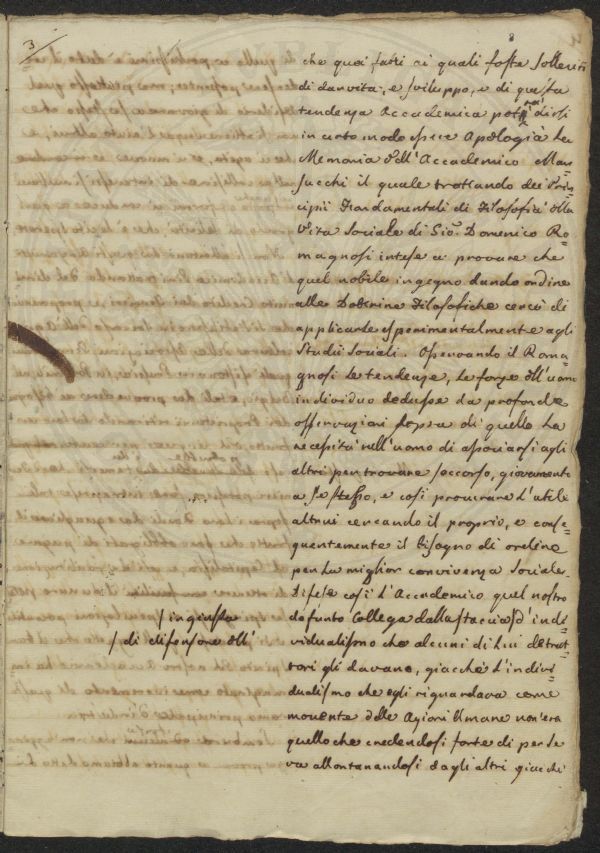 3
8
che quei fatti ai quali foste solleciti
di dar vita, e sviluppo, e di questa
tendenza Accademica potrà dirsi
in certo modo essere Apologia la
Memoria dell'Accademico Man=
succhi il quale trattando dei Prin
cipii Fondamentali di Filosofia della
Vita Sociale di Gio. Domenico Ro=
magnosi intese a provare che
quel nobile ingegno dando ordine
alle Dottrine Filosofiche cercò di
applicarle esperimentalmente agli
Studii Sociali. Osservando il Roma=
gnosi le tendenze, le forze dell'uomo
individuo dedusse da profonde
osservazioni sopra di quello la
necessità nell'uomo di associarsi agli
altri per trovare soccorso, giovamento
a se stesso, e così procurare l'utile
altrui cercando il proprio, e conse=
quentemente il bisogno di ordine
per la miglior convivenza sociale.
Difese così l'Accademico quel nostro
/ ingiusta
defunto Collega dalla taccia / d'indi=
/ di difensore dell'
vidualismo che alcuni di Lui detrat=
tori gli davano, giacchè l'indivi=
dualismo che egli riguardava come
movente delle Azioni Umane non era
quello che credendosi forte di per se
va allontanandosi dagli altri giacchè